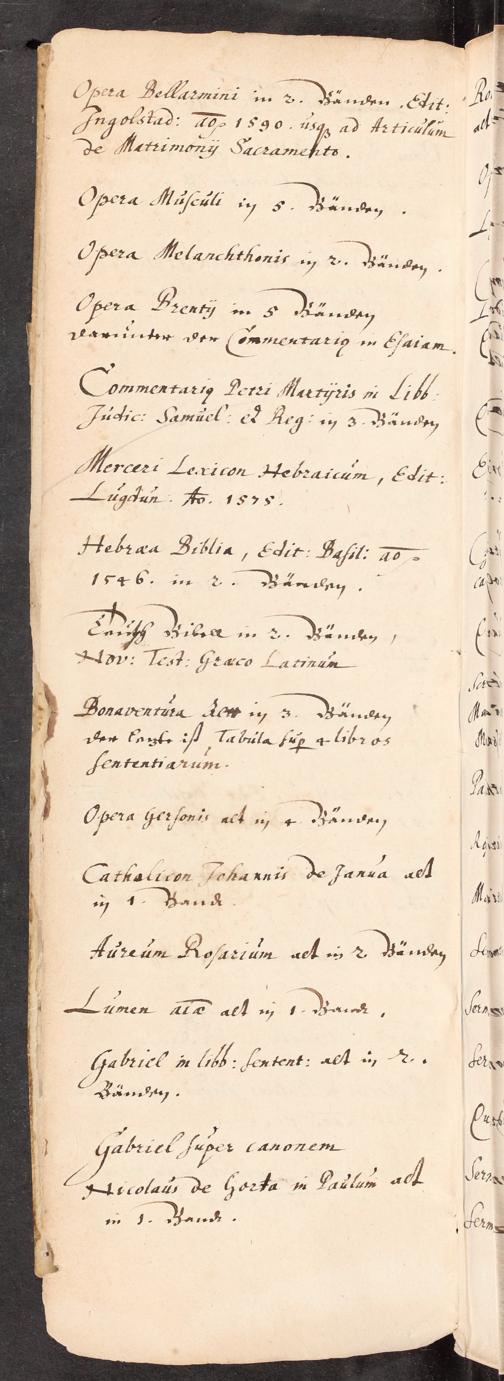 Opera Bellarmini in 2. Bänden, Edit:
Ingolstad: ao 1590. usq ad Articulum
de Matrimonij Sacramento.
Opera Musculi in 5. Bänden.
Opera Melanchthonis in 2. Bänden.
Opera Brentij in 5 Bänden
darunter der Commentariq in Esaiam.
Commentariq Petri Martyris in Libb:
Judic: Samuel: et Reg: in 3 Bänden
Merceri Lexicon Hebraicum, Edit:
Lugdun: Ao. 1575.
Hebræa Biblia, Edit: Basil: ao
1546. in 2. Bänden.
Bibel in 2. Bänden,
Nov: Test: Græco Latinum
Bonaventura in 3. Bänden
der letzte ist Tabula sup 4 libros
sententiarum.
Opera Gersonis alt in 4 Bänden
Catholicon Johannis de Janua alt
in 1. Bandt.
Aureum Rosarium alt in 2 Bänden
Lumen aiæ alt in 1. Bandt.
Gabriel in libb: sentent: alt in 2.
Bänden.
Gabriel super canonem
Nicolaus de Gorra in Paulum alt
in 1. Bandt.